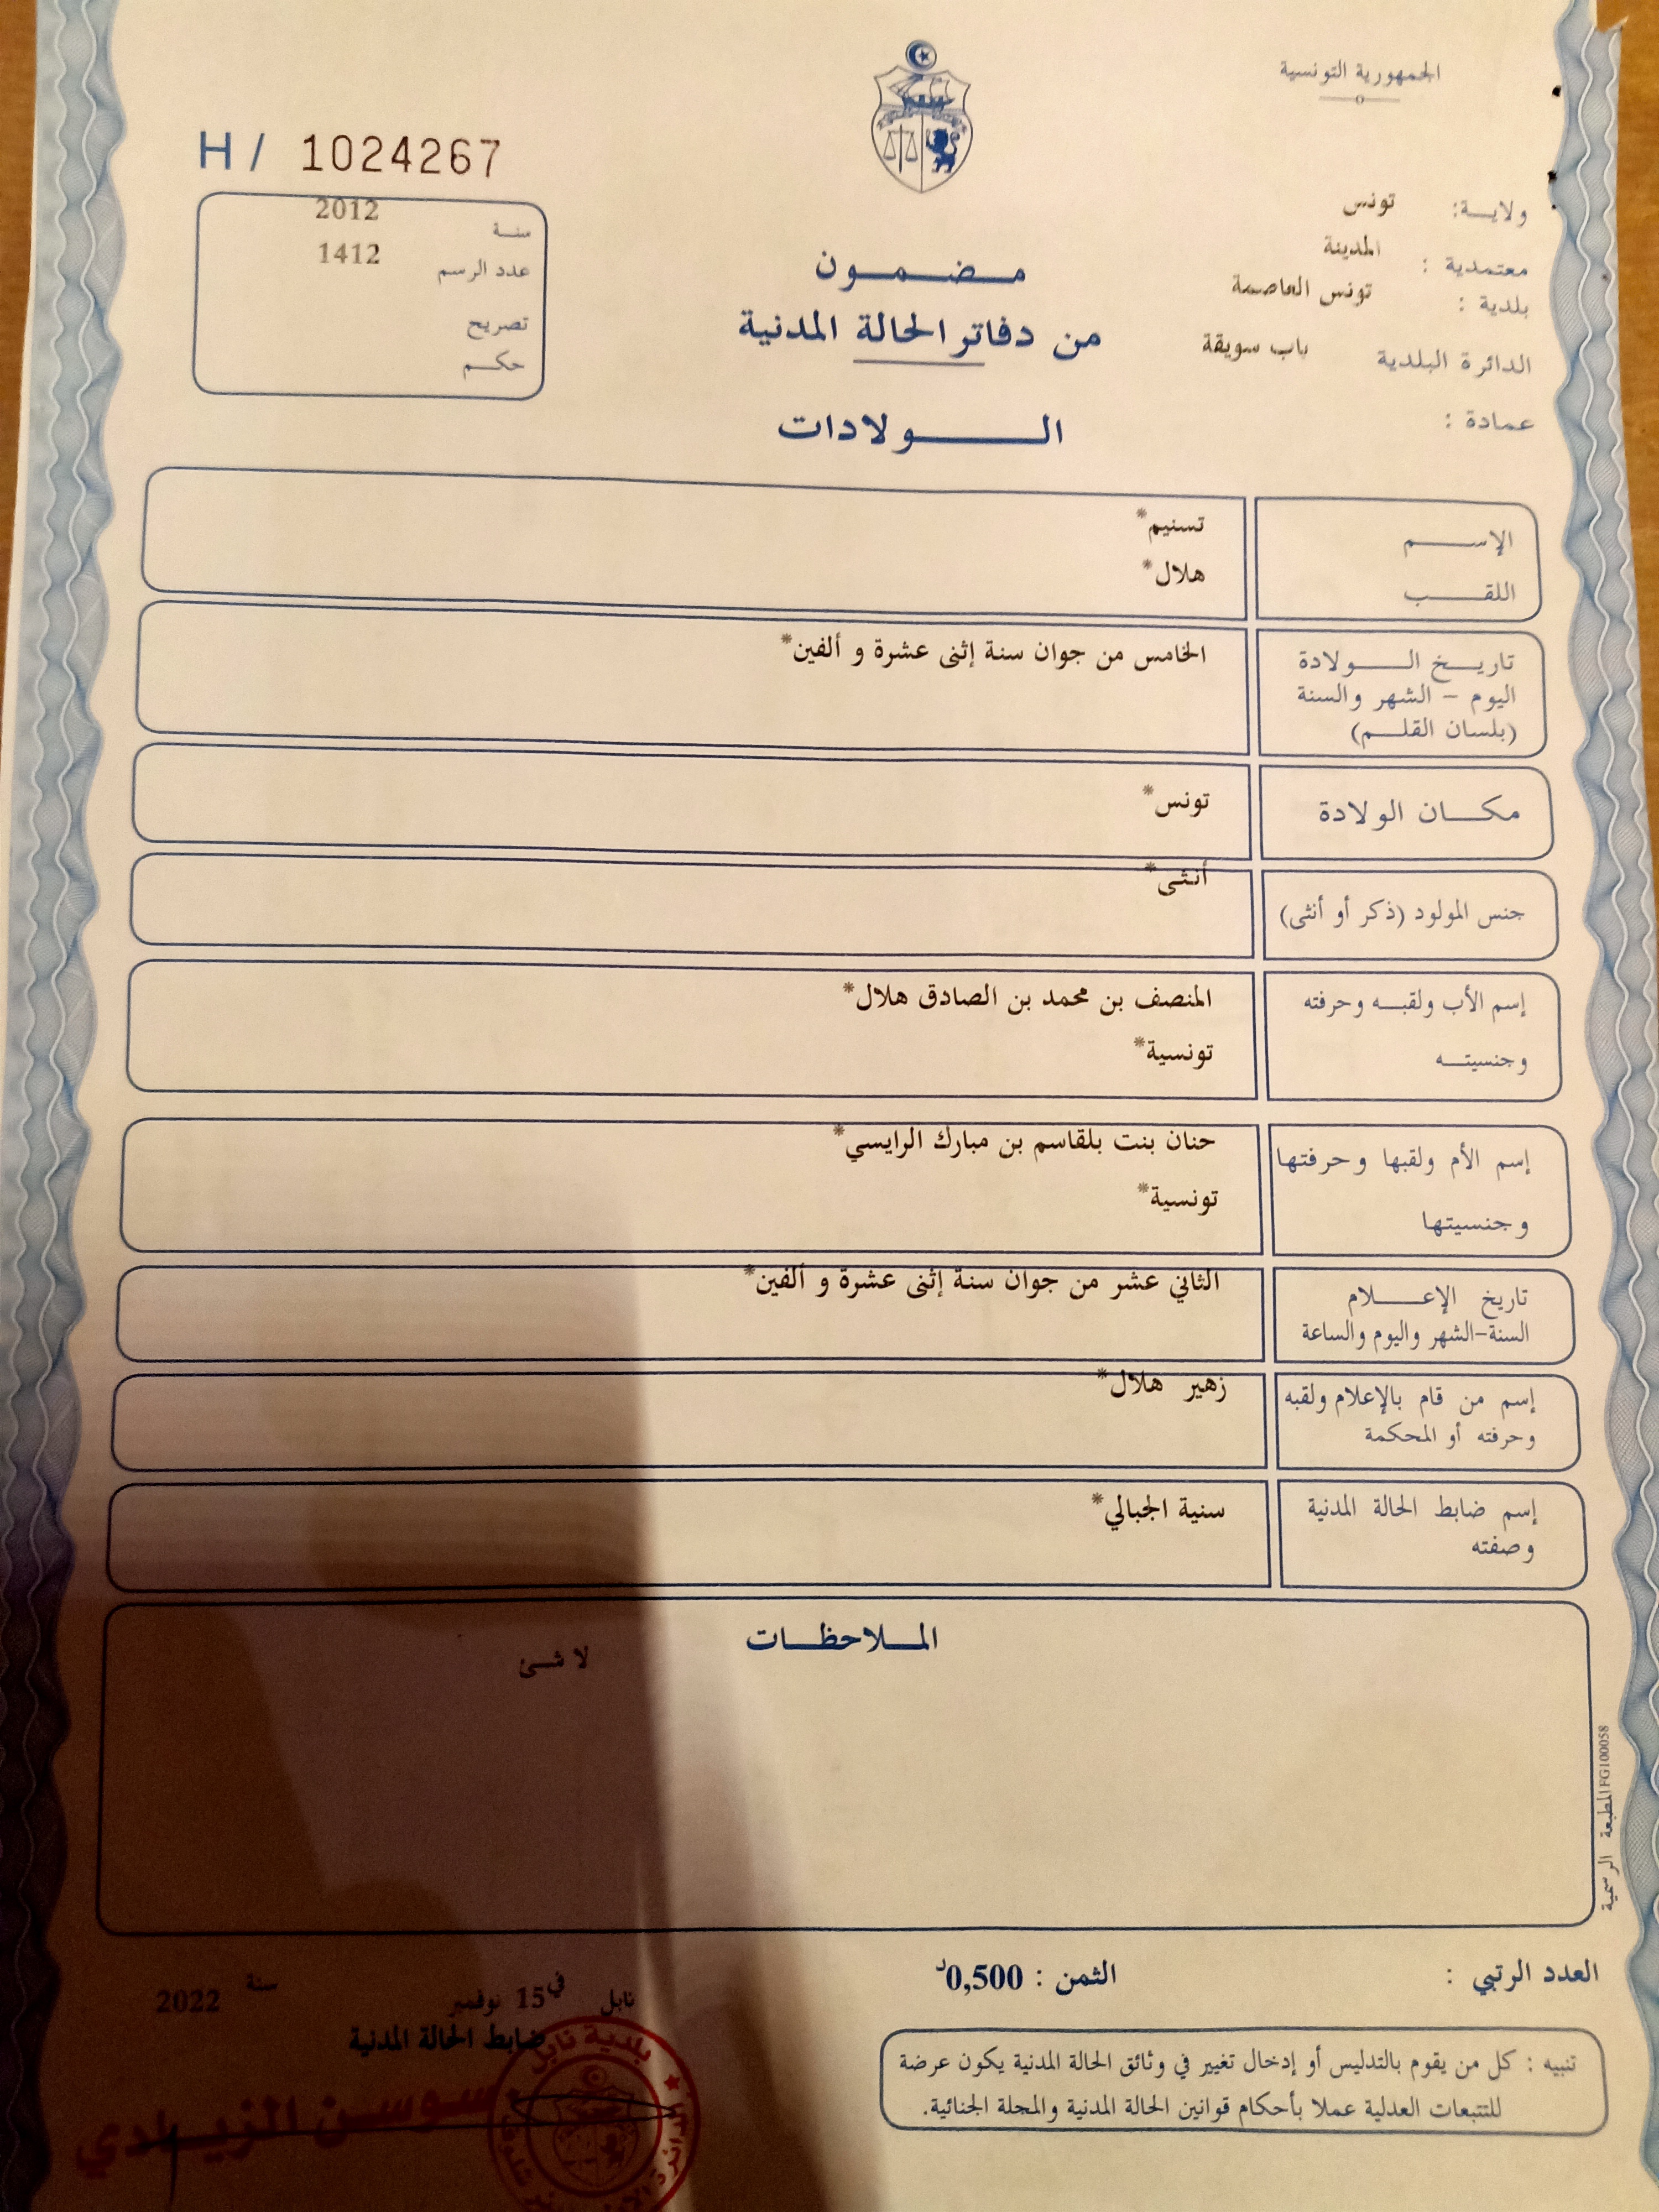 الجمهورية التونسية
H / 1024267
ولايـــة: تونس
معتمدية : المدينة
بلدية : تونس العاصمة
الدائرة البلدية باب سويقة
عمادة :
سنـــة 2012
عدد الرسم 1412
تصريح
حكـــم
مـــضـــمـــون
من دفاتر الحالة المدنية
الـــولادات
الإســـم تسنيم*
اللقـــب هلال*
تاريـــخ الـــولادة الخامس من جوان سنة إثنى عشرة و ألفين*
اليوم – الشهر والسنة
(بلسان القلـــم)
مكـــان الولادة تونس*
جنس المولود (ذكر أو أنثى) أنثى*
إسم الأب ولقبـــه وحرفته المنصف بن محمد بن الصادق هلال*
وجنسيتـــه تونسية*
إسم الأم ولقبها وحرفتها حنان بنت بلقاسم بن مبارك الرايسي*
وجنسيتها تونسية*
تاريخ الإعـــلام الثاني عشر من جوان سنة إثنى عشرة و ألفين*
السنة-الشهر واليوم والساعة
إسم من قام بالإعلام ولقبه زهير هلال*
وحرفته أو المحكمة
إسم ضابط الحالة المدنية سنية الجبالي*
وصفته
المـــلاحظـــات
لا شـــئ
المطبعة الرسمية FG100058
العدد الرتبي :
الثمن : 0,500د
نابل في 15 نوفمبر سنة 2022
ضابط الحالة المدنية
سوسن الزيـــادي
بلدية نابل
تنبيه : كل من يقوم بالتدليس أو إدخال تغيير في وثائق الحالة المدنية يكون عرضة
للتتبعات العدلية عملا بأحكام قوانين الحالة المدنية والمجلة الجنائية.